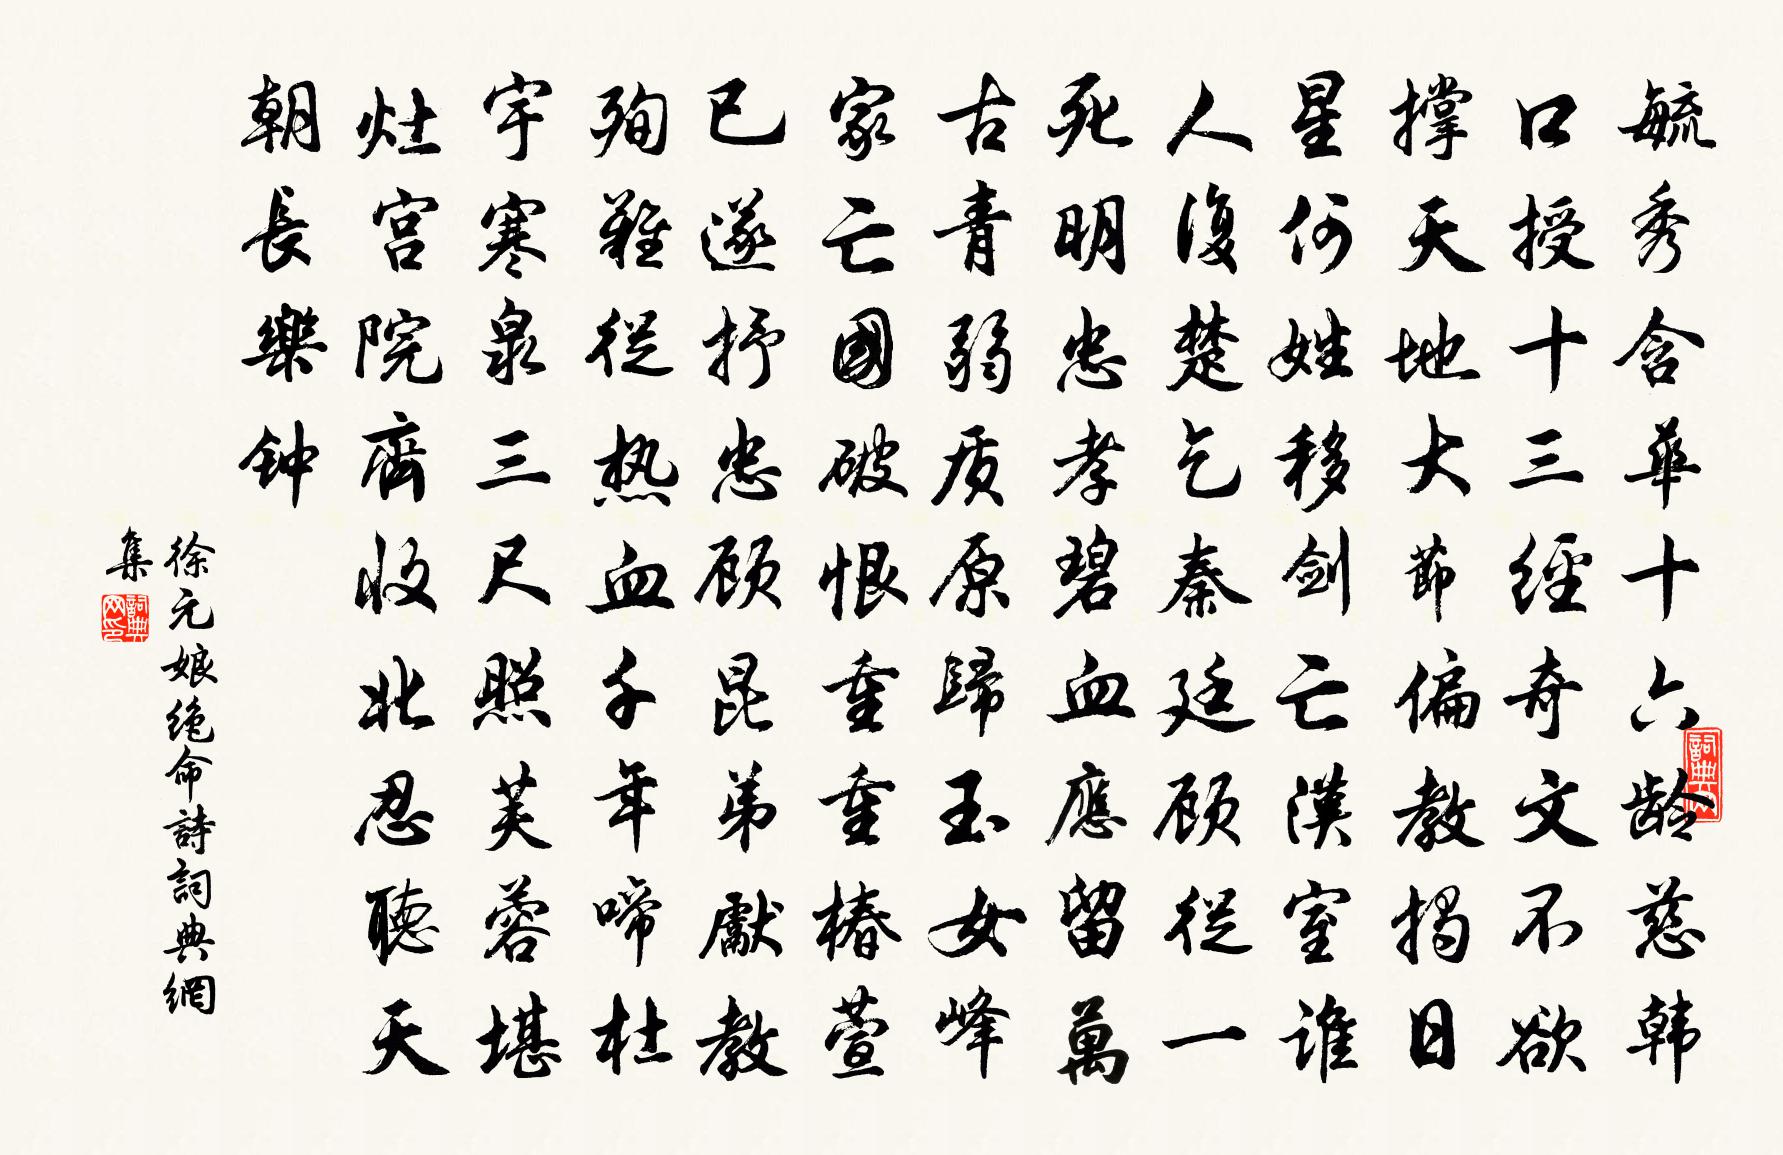 毓秀含華十六龄慈韩
口授十三經奇文不欲
撑天地大節偏教揭日
星何姓移剑亡漢室谁
人復楚乞秦廷顾從一
死明忠孝碧血應留萬
古青弱质原歸玉女峰
家亡國破恨重重椿萱
已遂抒忠顾昆弟獻教
殉難從热血千年啼杜
宇寒泉三尺照芙蓉堪
灶宫院齊收北忍聽天
朝長樂钟
徐元娘绝命詩詞典網
集
詞典
詞典网印